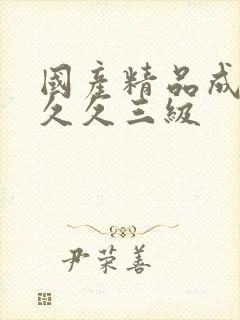 國產精品成
久久三級
尹荣善